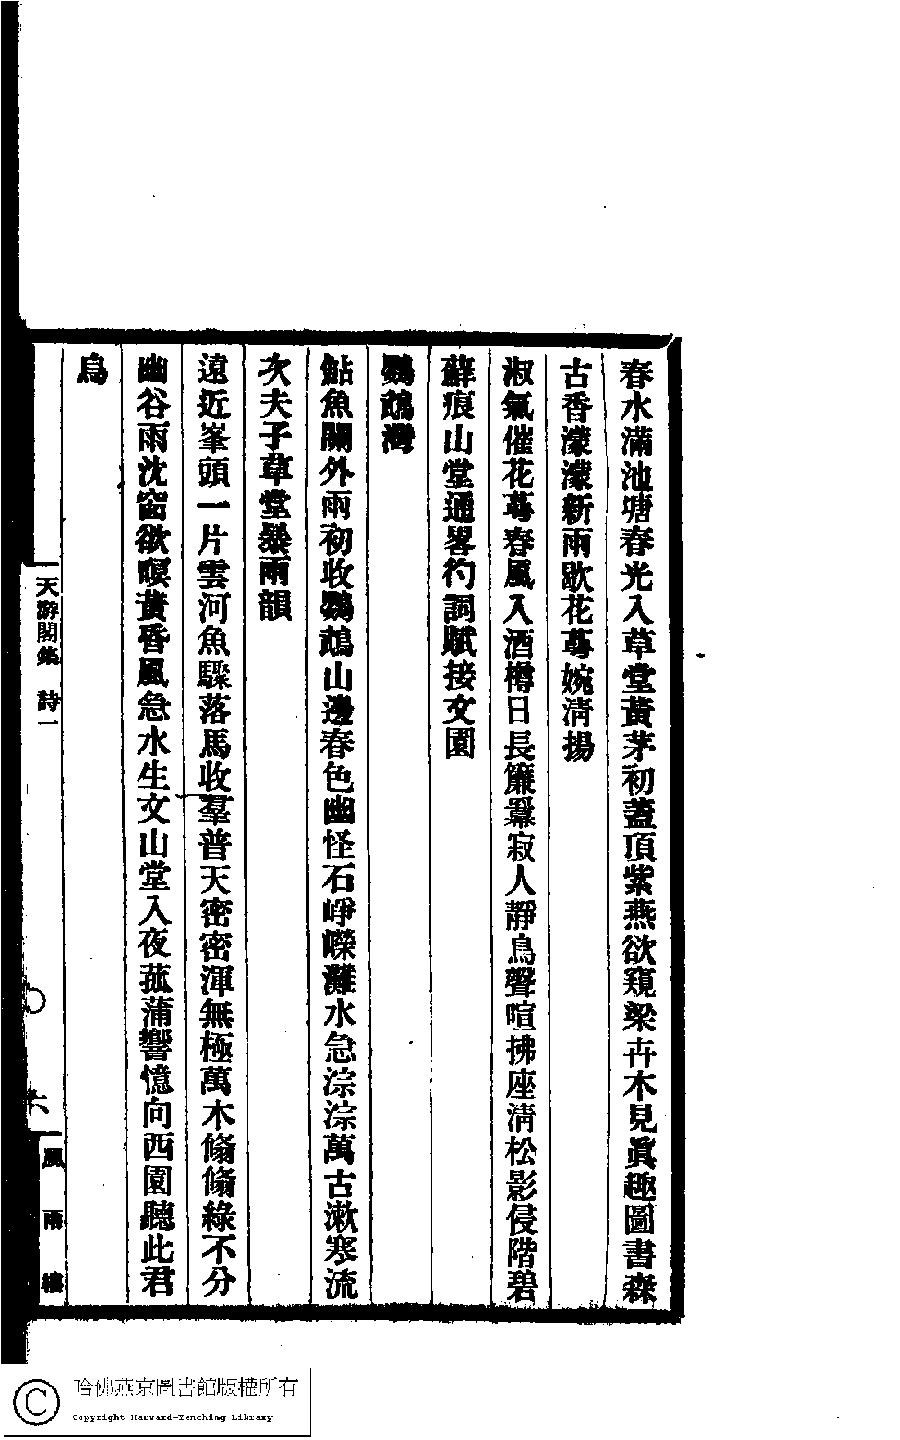 春水滿池塘春光入草堂黃茅初蓋頂紫燕欲窺梁卉木見眞趣圖書森
古香濛濛新雨歇花萼婉淸揚
淑氣催花萼春風入酒樽日長簾羃寂人靜鳥聲喧拂座淸松影侵階碧
蘚痕山堂通畧彴詞賦接文園
鸚鵡灣
鮎魚關外雨初收鸚鵡山邊春色幽怪石崢嶸灘水急淙淙萬古漱寒流
次夫子草堂暴雨韻
遠近峯頭一片雲河魚驟落馬收羣普天密密渾無極萬木翛翛綠不分
幽谷雨沈窗欲暝黃昏風急水生文山堂入夜菰蒲響憶向西園聽此君
鳥
天游閣集 詩一
六
風雨樓
哈佛燕京圖書館版權所有
Copyright Harvard-Yenching Library